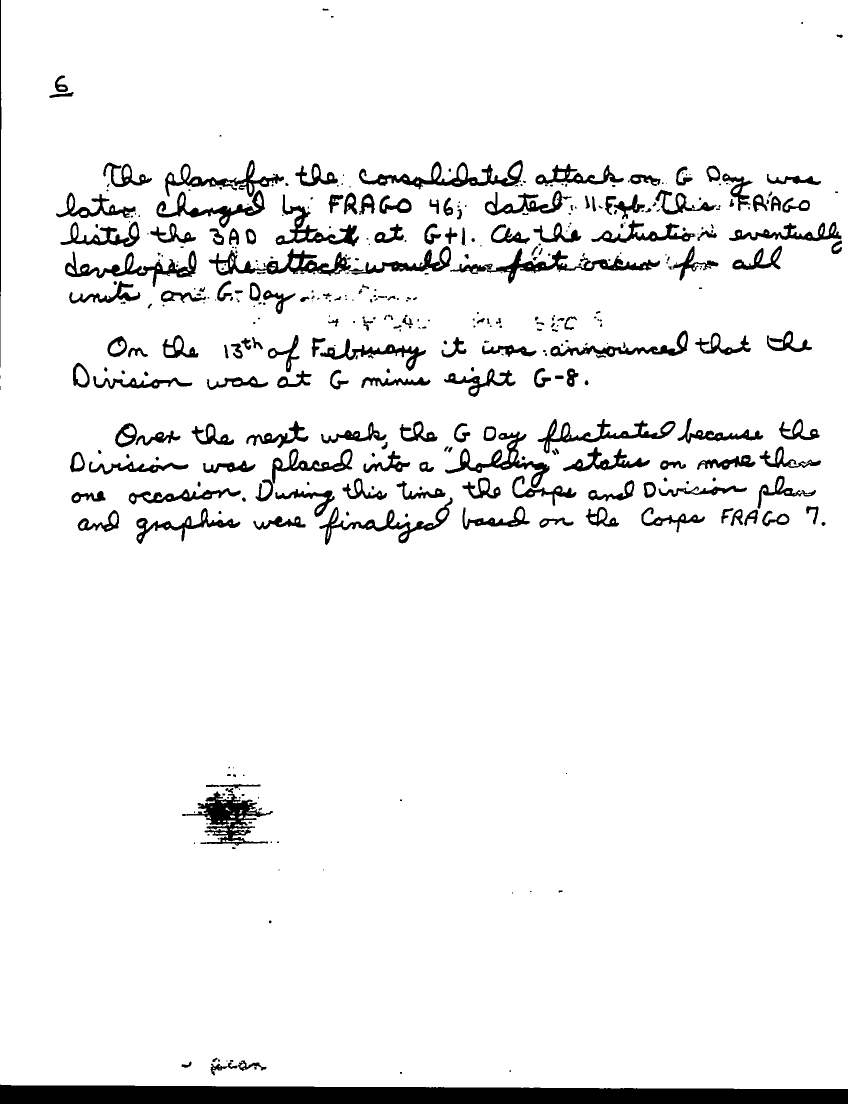 6
The plan for the consolidated attack on G Day was
later changed by FRAGO 46, dated 11 Feb. This FRAGO
listed the 3AD attack at G+1. As the situation eventually
developed the attack would in fact occur for all
units on G-Day
On the 13th of February it was announced that the
Division was at G minus eight G-8.
Over the next week, the G Day fluctuated because the
Division was placed into a "holding" status on more than
one occasion. During this time, the Corps and Division plan
and graphics were finalized based on the Corps FRAGO 7.